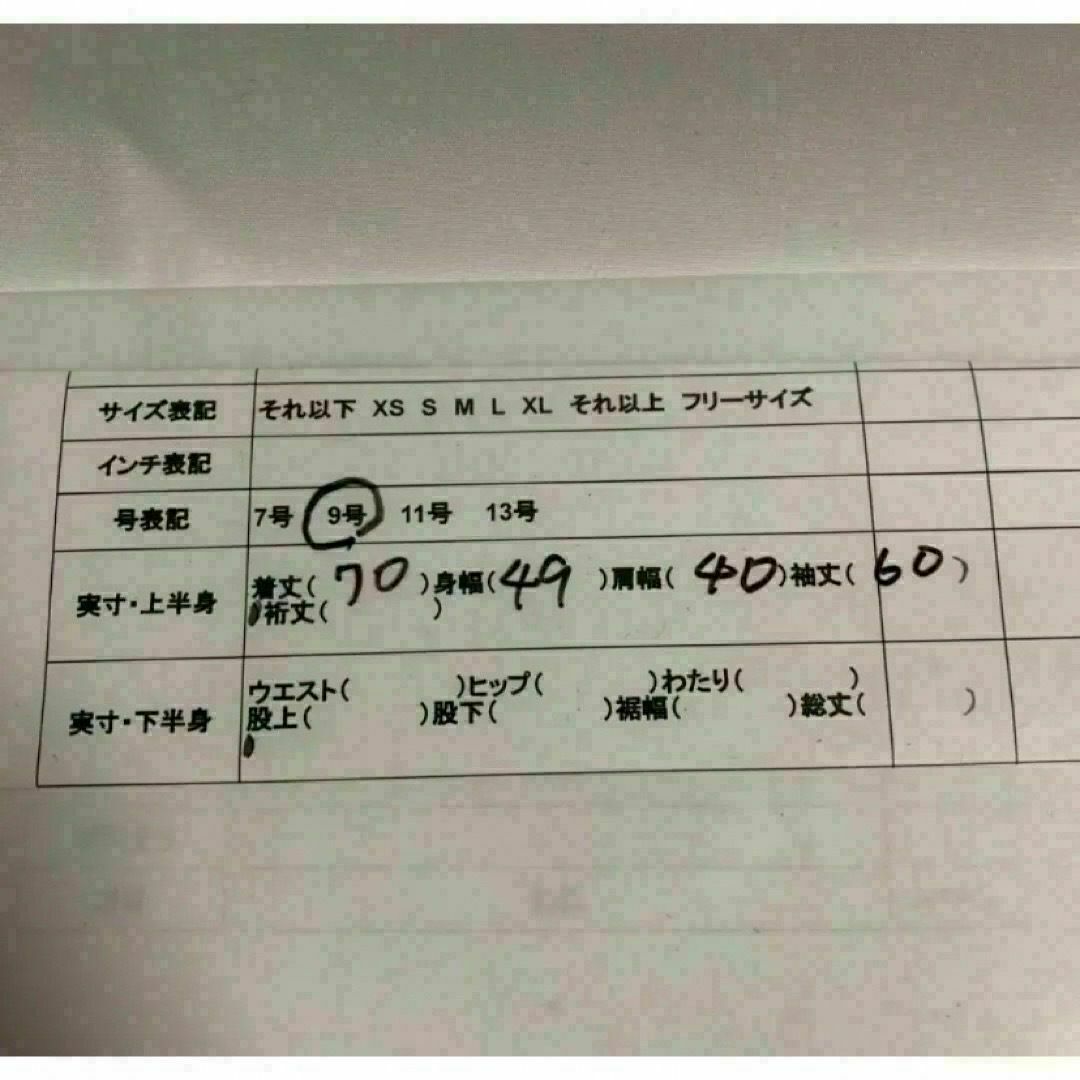 サイズ表記 それ以下 XS S M L XL それ以上 フリーサイズ
インチ表記
号表記 7号 9号 11号 13号
実寸・上半身 着丈( 70 )身幅( 49 )肩幅( 40 )袖丈( 60 )
裄丈( )
実寸・下半身 ウエスト( )ヒップ( )わたり( )
股上( )股下( )裾幅( )総丈( )